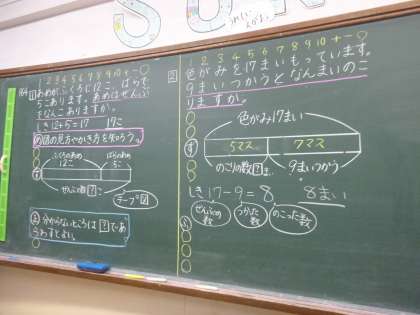 1 2 3 4 5 6 7 8 9 10 + - ○
1
あめがふくろに12こ、ばらで
5こあります。あめはぜんぶで
なんこありますか。
しき12+5=17 17こ
め図の見方やかき方を知ろう。
ふくろのあめ
12こ
ばらのあめ
5こ
ず
ぜんぶの数?こ
テープ図
ま
分からないところは?であ
らわすとよい。
1 2 3 4 5 6 7 8 9 10 + - ○
2
色がみを17まいもっています。
9まいつかうとなんまいのこ
りますか。
色がみ17まい
ず
5マス
7マス
のこりの数?ま
9まいつかう
しき17-9=8 8まい
ぜんぶの
数
つかった
数
のこった
数